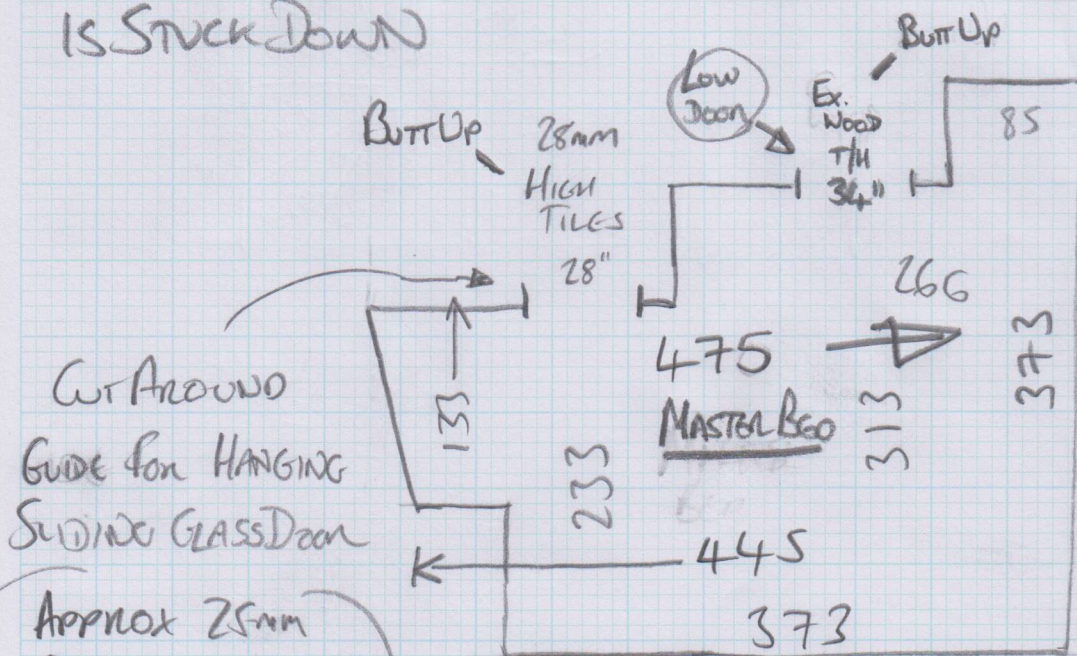 IS STUCK DOWN
BUTT UP
LOW
DOOR
BUTT UP
EX.
WOOD
T/H
34"
85
28mm
HIGH
TILES
28"
266
373
475
MASTER BED
313
133
233
CUT AROUND
GUIDE FOR HANGING
SLIDING GLASS DOOR
445
373
APPROX 25mm